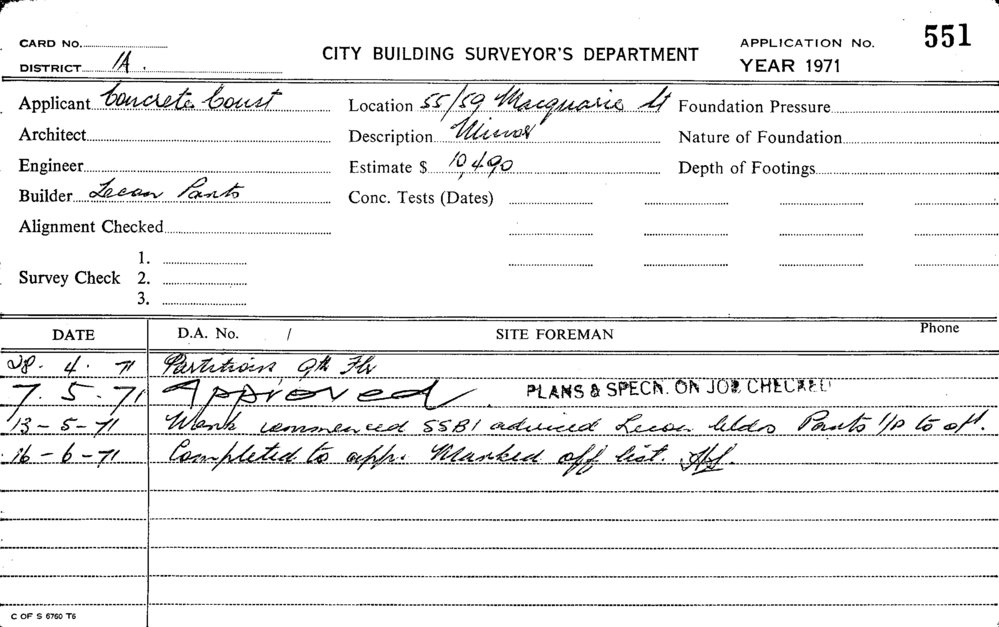 CARD No. CITY BUILDING SURVEYOR'S DEPARTMENT APPLICATION No. 551
DISTRICT 1A. YEAR 1971
Applicant Concrete Const Location 55/59 Macquarie St Foundation Pressure
Architect Description Minor Nature of Foundation
Engineer Estimate $ 10,490 Depth of Footings
Builder Lecon Parts Conc. Tests (Dates)
Alignment Checked
1.
Survey Check 2.
3.
DATE D.A. No. / SITE FOREMAN Phone
28. 4. 71 Partitions 9th Flr
7. 5. 71 Approved. PLANS & SPECN. ON JOB CHECKED
13-5-71 Work commenced SSB1 advised Lecon bldrs Parts 1/P to
16-6-71 Completed to app. Marked off list.
C OF S 6760 T6